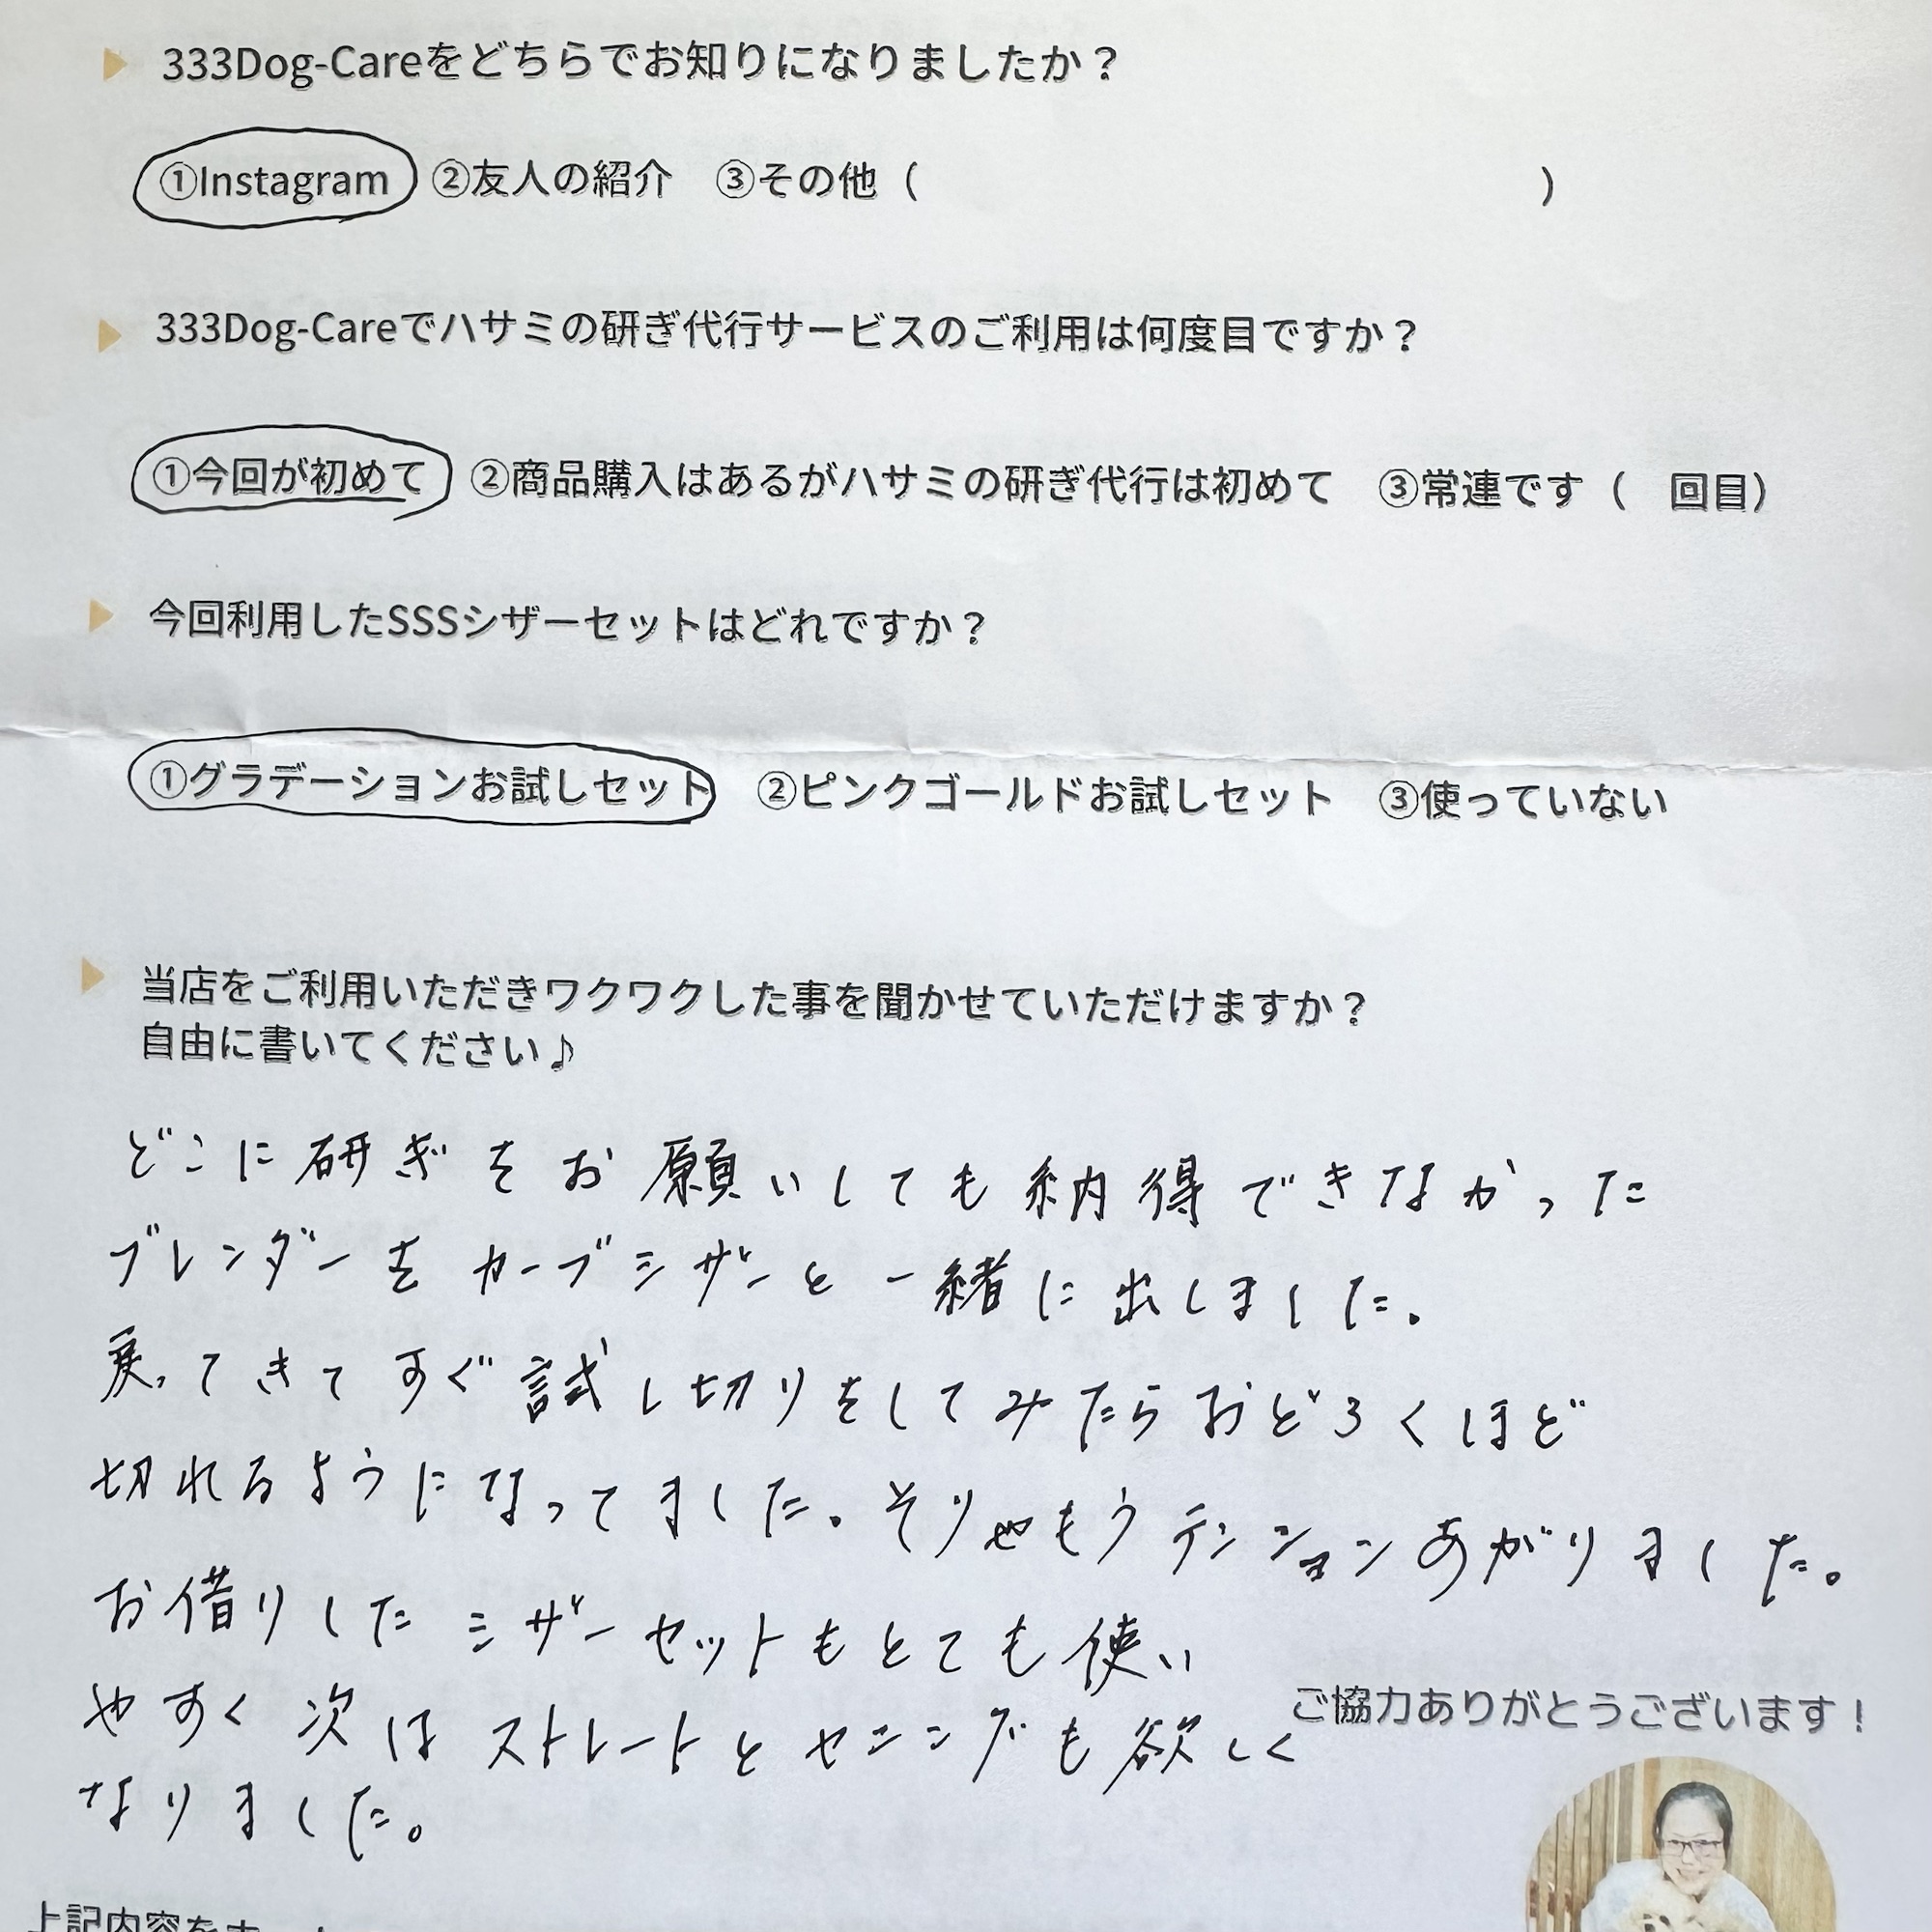 333Dog-Careをどちらでお知りになりましたか？
①Instagram ②友人の紹介　③その他（　　　　　　　　　　　　　　　）
333Dog-Careでハサミの研ぎ代行サービスのご利用は何度目ですか？
①今回が初めて ②商品購入はあるがハサミの研ぎ代行は初めて　③常連です（　回目）
今回利用したSSSシザーセットはどれですか？
①グラデーションお試しセット　②ピンクゴールドお試しセット　③使っていない
当店をご利用いただきワクワクした事を聞かせていただけますか？
自由に書いてください♪
どこに研ぎをお願いしても納得できなかった
ブレンダーをカーブシザーと一緒に出しました。
戻ってきてすぐ試し切りをしてみたらおどろくほど
切れるようになってました。そりゃもうテンションあがりました。
お借りしたシザーセットもとても使い
やすく次はストレートとセニングも欲しく
なりました。
ご協力ありがとうございます！
上記内容を